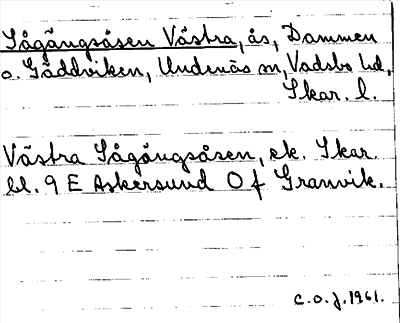 Sågängsåsen Västra, ås, Dammen
o. Gäddviken, Undenäs sn, Vadsbo hd,
Skar. l.
Västra Sågängsåsen, ek. Skar.
bl. 9 E Askersund 0 f Granvik.
C.O.J. 1961.